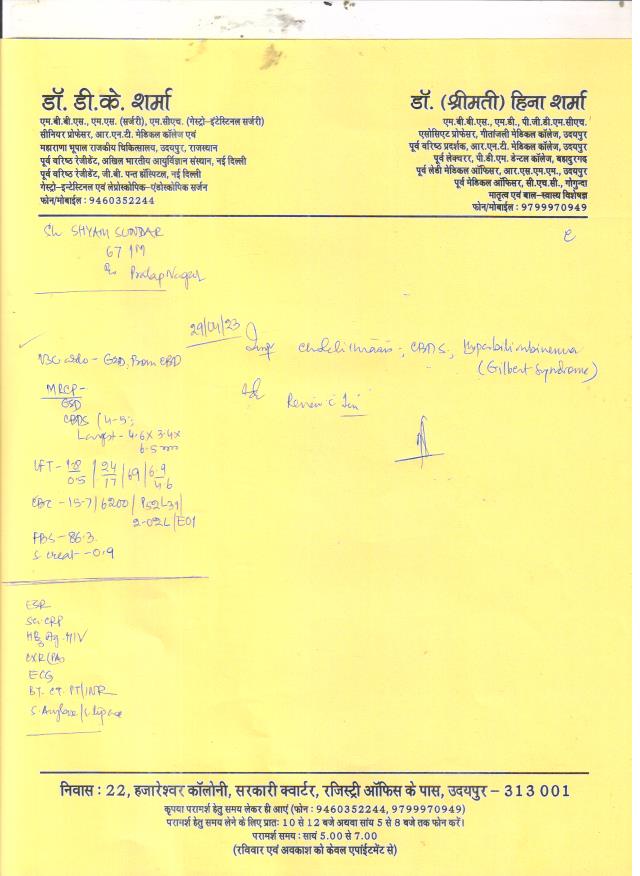 डॉ. डी.के. शर्मा
एम.बी.बी.एस., एम.एस. (सर्जरी), एम.सीएच. (गेस्ट्रो-इंटेस्टिनल सर्जरी)
सीनियर प्रोफेसर, आर.एन.टी. मेडिकल कॉलेज एवं
महाराणा भूपाल राजकीय चिकित्सालय, उदयपुर, राजस्थान
पूर्व वरिष्ठ रेजीडेंट, अखिल भारतीय आयुर्विज्ञान संस्थान, नई दिल्ली
पूर्व वरिष्ठ रेजीडेंट, जी.बी. पन्त हॉस्पिटल, नई दिल्ली
गेस्ट्रो-इन्टेस्टिनल एवं लेप्रोस्कोपिक-एंडोस्कोपिक सर्जन
फोन/मोबाईल : 9460352244
डॉ. (श्रीमती) हिना शर्मा
एम.बी.बी.एस., एम.डी., पी.जी.डी.एम.सीएच.
एसोसिएट प्रोफेसर, गीतांजली मेडिकल कॉलेज, उदयपुर
पूर्व वरिष्ठ प्रदर्शक, आर.एन.टी. मेडिकल कॉलेज, उदयपुर
पूर्व लेक्चरर, पी.डी.एम. डेन्टल कॉलेज, बहादुरगढ़
पूर्व लेडी मेडिकल ऑफिसर, आर.एस.एम.एम., उदयपुर
पूर्व मेडिकल ऑफिसर, सी.एच.सी., गोगुन्दा
मातृत्व एवं बाल-स्वास्थ्य विशेषज्ञ
फोन/मोबाईल : 9799970949
Sh SHYAM SUNDAR
67 / M
R/o Pratap Nagar
29/04/23
CBDS, Hyperbilirubinemia
(Gilbert Syndrome)
Review c
GSD, 8mm CBD
MRCP-
GSD
CBDS (4-5;
Largest - 4.6 x 3.4 x
6.5 mm
LFT - 1.28/0.5 / 24/17 / 69 / 6.9/4.6
CBC - 15.7 / 6200 / P52 L31
FBS - 86.3
S. creat - 0.9
ESR
Sr. CRP
HBsAg. HIV
CXR (PA)
ECG
BT. CT. PT/INR
S. Amylase / S. lipase
निवास : 22, हजारेश्वर कॉलोनी, सरकारी क्वार्टर, रजिस्ट्री ऑफिस के पास, उदयपुर - 313 001
कृपया परामर्श हेतु समय लेकर ही आएं (फोन : 9460352244, 9799970949)
परामर्श हेतु समय लेने के लिए प्रातः 10 से 12 बजे अथवा सांय 5 से 8 बजे तक फोन करें।
परामर्श समय : सायं 5.00 से 7.00
(रविवार एवं अवकाश को केवल एपांईटमेंट से)